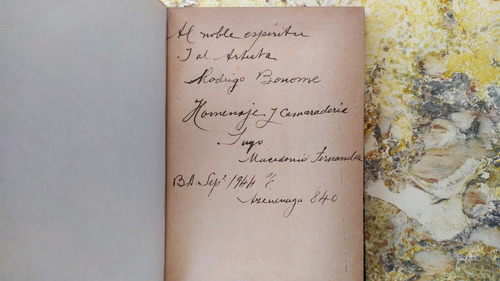 Al noble espíritu
I al Artista
Rodrigo Bonome
Homenaje y Camaradería
Suyo
Macedonio Fernandez
BA. Sepe 1944 S/C
Azcuenaga 840